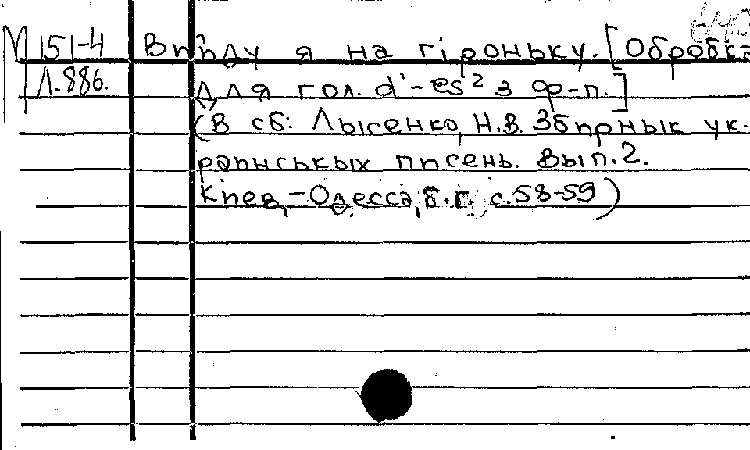 М 151-4 Вийду я на гіроньку. [Обробка
Л.886. для гол. d'-es² з ф-п.]
(В сб: Лысенко, Н.В. Збирнык ук-
раинськых писень. Вып.2.
Киев,-Одесса, б.г. с.58-59)